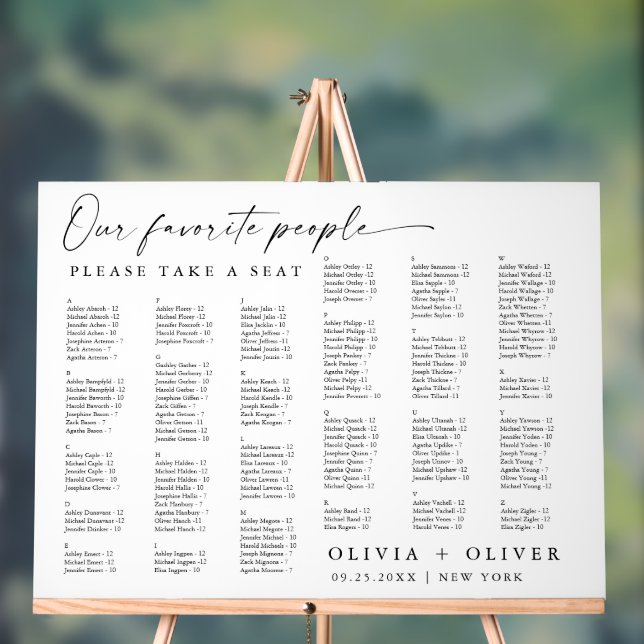 Our favorite people
PLEASE TAKE A SEAT
A
Ashley Abaroh - 12
Michael Abaroh -12
Jennifer Achen - 10
Harold Achen - 10
Josephine Arteron - 7
Zack Arteron - 7
Agatha Arteron - 7
B
Ashley Bampfyld - 12
Michael Bampfyld -12
Jennifer Baworth - 10
Harold Baworth - 10
Josephine Bason - 7
Zack Bason - 7
Agatha Bason - 7
C
Ashley Caple - 12
Michael Caple -12
Jennifer Caple - 10
Harold Clower - 7
Josephine Clower - 7
D
Ashley Donavant - 12
Michael Donavant -12
Jennifer Drinker - 10
E
Ashley Emert - 12
Michael Emert -12
Jennifer Emert - 10
F
Ashley Florey - 12
Michael Florey -12
Jennifer Foxcroft - 10
Harold Foxcroft - 10
Josephine Foxcroft - 7
G
Gashley Gather - 12
Michael Gerberry -12
Jennifer Gerber - 10
Harold Gerber - 10
Zack Giffen - 7
Agatha Getson - 7
Oliver Getson - 11
Michael Getson -12
H
Ashley Halden - 12
Michael Halden -12
Jennifer Halden - 10
Harold Halden - 10
Josephine Hallis - 7
Zack Hanbury - 7
Agatha Hanbury - 7
Oliver Hanch - 11
Michael Hanch -12
I
Ashley Ingpen - 12
Michael Ingpen -12
Elisa Ingpen - 10
J
Ashley Jalin - 12
Michael Jalin -12
Elisa Jacklin - 10
Agatha Jeffress - 7
Oliver Jeffress - 11
Michael Joutin -12
Jennifer Joutin - 10
K
Ashley Keach - 12
Michael Keach -12
Harold Kendle - 10
Joseph Kendle - 7
Zack Keogan - 7
Agatha Keogan - 7
L
Ashley Lareaux - 12
Michael Lareaux -12
Elisa Lareaux - 10
Agatha Lawren - 7
Oliver Lawren - 11
Michael Lawren -12
Jennifer Lawren - 10
M
Ashley Megote - 12
Michael Megote -12
Jennifer Megote - 10
Harold Micheals - 10
Joseph Mignona - 7
Zack Mignona - 7
Agatha Moorese - 7
O
Ashley Ottley - 12
Michael Ottley -12
Jennifer Ottley - 10
Harold Overset - 10
Joseph Overset - 7
P
Ashley Philipp - 12
Michael Philipp -12
Jennifer Philipp - 10
Harold Philipp - 10
Joseph Pankey - 7
Zack Pankey - 7
Agatha Pelpy - 7
Oliver Pelpy -11
Michael Pelpy -12
Jennifer Peverett - 10
Q
Ashley Quasck - 12
Michael Quasck -12
Jennifer Quasck - 10
Harold Quasck - 10
Josephine Quinn - 7
Zack Quinn - 7
Agatha Quinn - 7
Oliver Quinn - 11
Michael Quinn -12
R
Ashley Rand - 12
Michael Rand -12
Elisa Rogers - 10
S
Ashley Sammons - 12
Michael Sammons -12
Elisa Sapple - 10
Agatha Sapple - 7
Oliver Sayles - 11
Michael Saylon -12
Jennifer Saylon - 10
T
Ashley Tebbutt - 12
Michael Tebbutt -12
Jennifer Thickne - 10
Harold Thickne - 10
Joseph Thickne - 7
Zack Thickne - 7
Agatha Tillard - 7
Oliver Tillard - 11
U
Ashley Ultanah - 12
Michael Ultanah -12
Elisa Ultanah - 10
Agatha Updike - 7
Oliver Updike - 1
Joseph Utnov - 10
Michael Upshaw -12
Jennifer Upshaw - 10
V
Ashley Vachell - 12
Michael Vachell -12
Jennifer Venes - 10
Harold Venes - 10
W
Ashley Waford - 12
Michael Waford -12
Jennifer Waford - 10
Harold Wallage - 10
Joseph Wallage - 7
Zack Whetten - 7
Agatha Whetten - 7
Oliver Whetten -11
Michael Whyrow -12
Jennifer Whyrow - 10
Harold Whyrow - 10
Joseph Whyrow - 7
X
Ashley Xavier - 12
Michael Xavier -12
Jennifer Xavier - 10
Y
Ashley Yawson - 12
Michael Yawson -12
Jennifer Yoden - 10
Harold Yoden - 10
Joseph Young - 7
Zack Young - 7
Agatha Young - 7
Oliver Young - 11
Michael Young -12
Z
Ashley Zigler - 12
Michael Zigler -12
Jennifer Zigler - 10
OLIVIA + OLIVER
09.25.20XX | NEW YORK